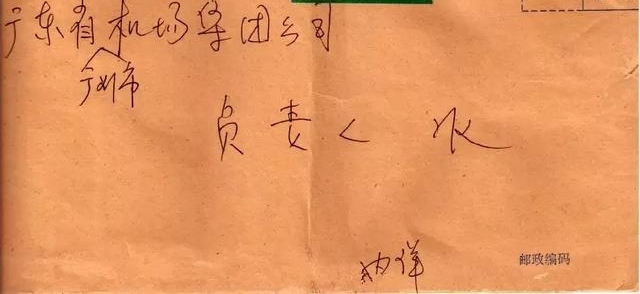 广东省机场集团公司
广州市
负责人 收
内详
邮政编码